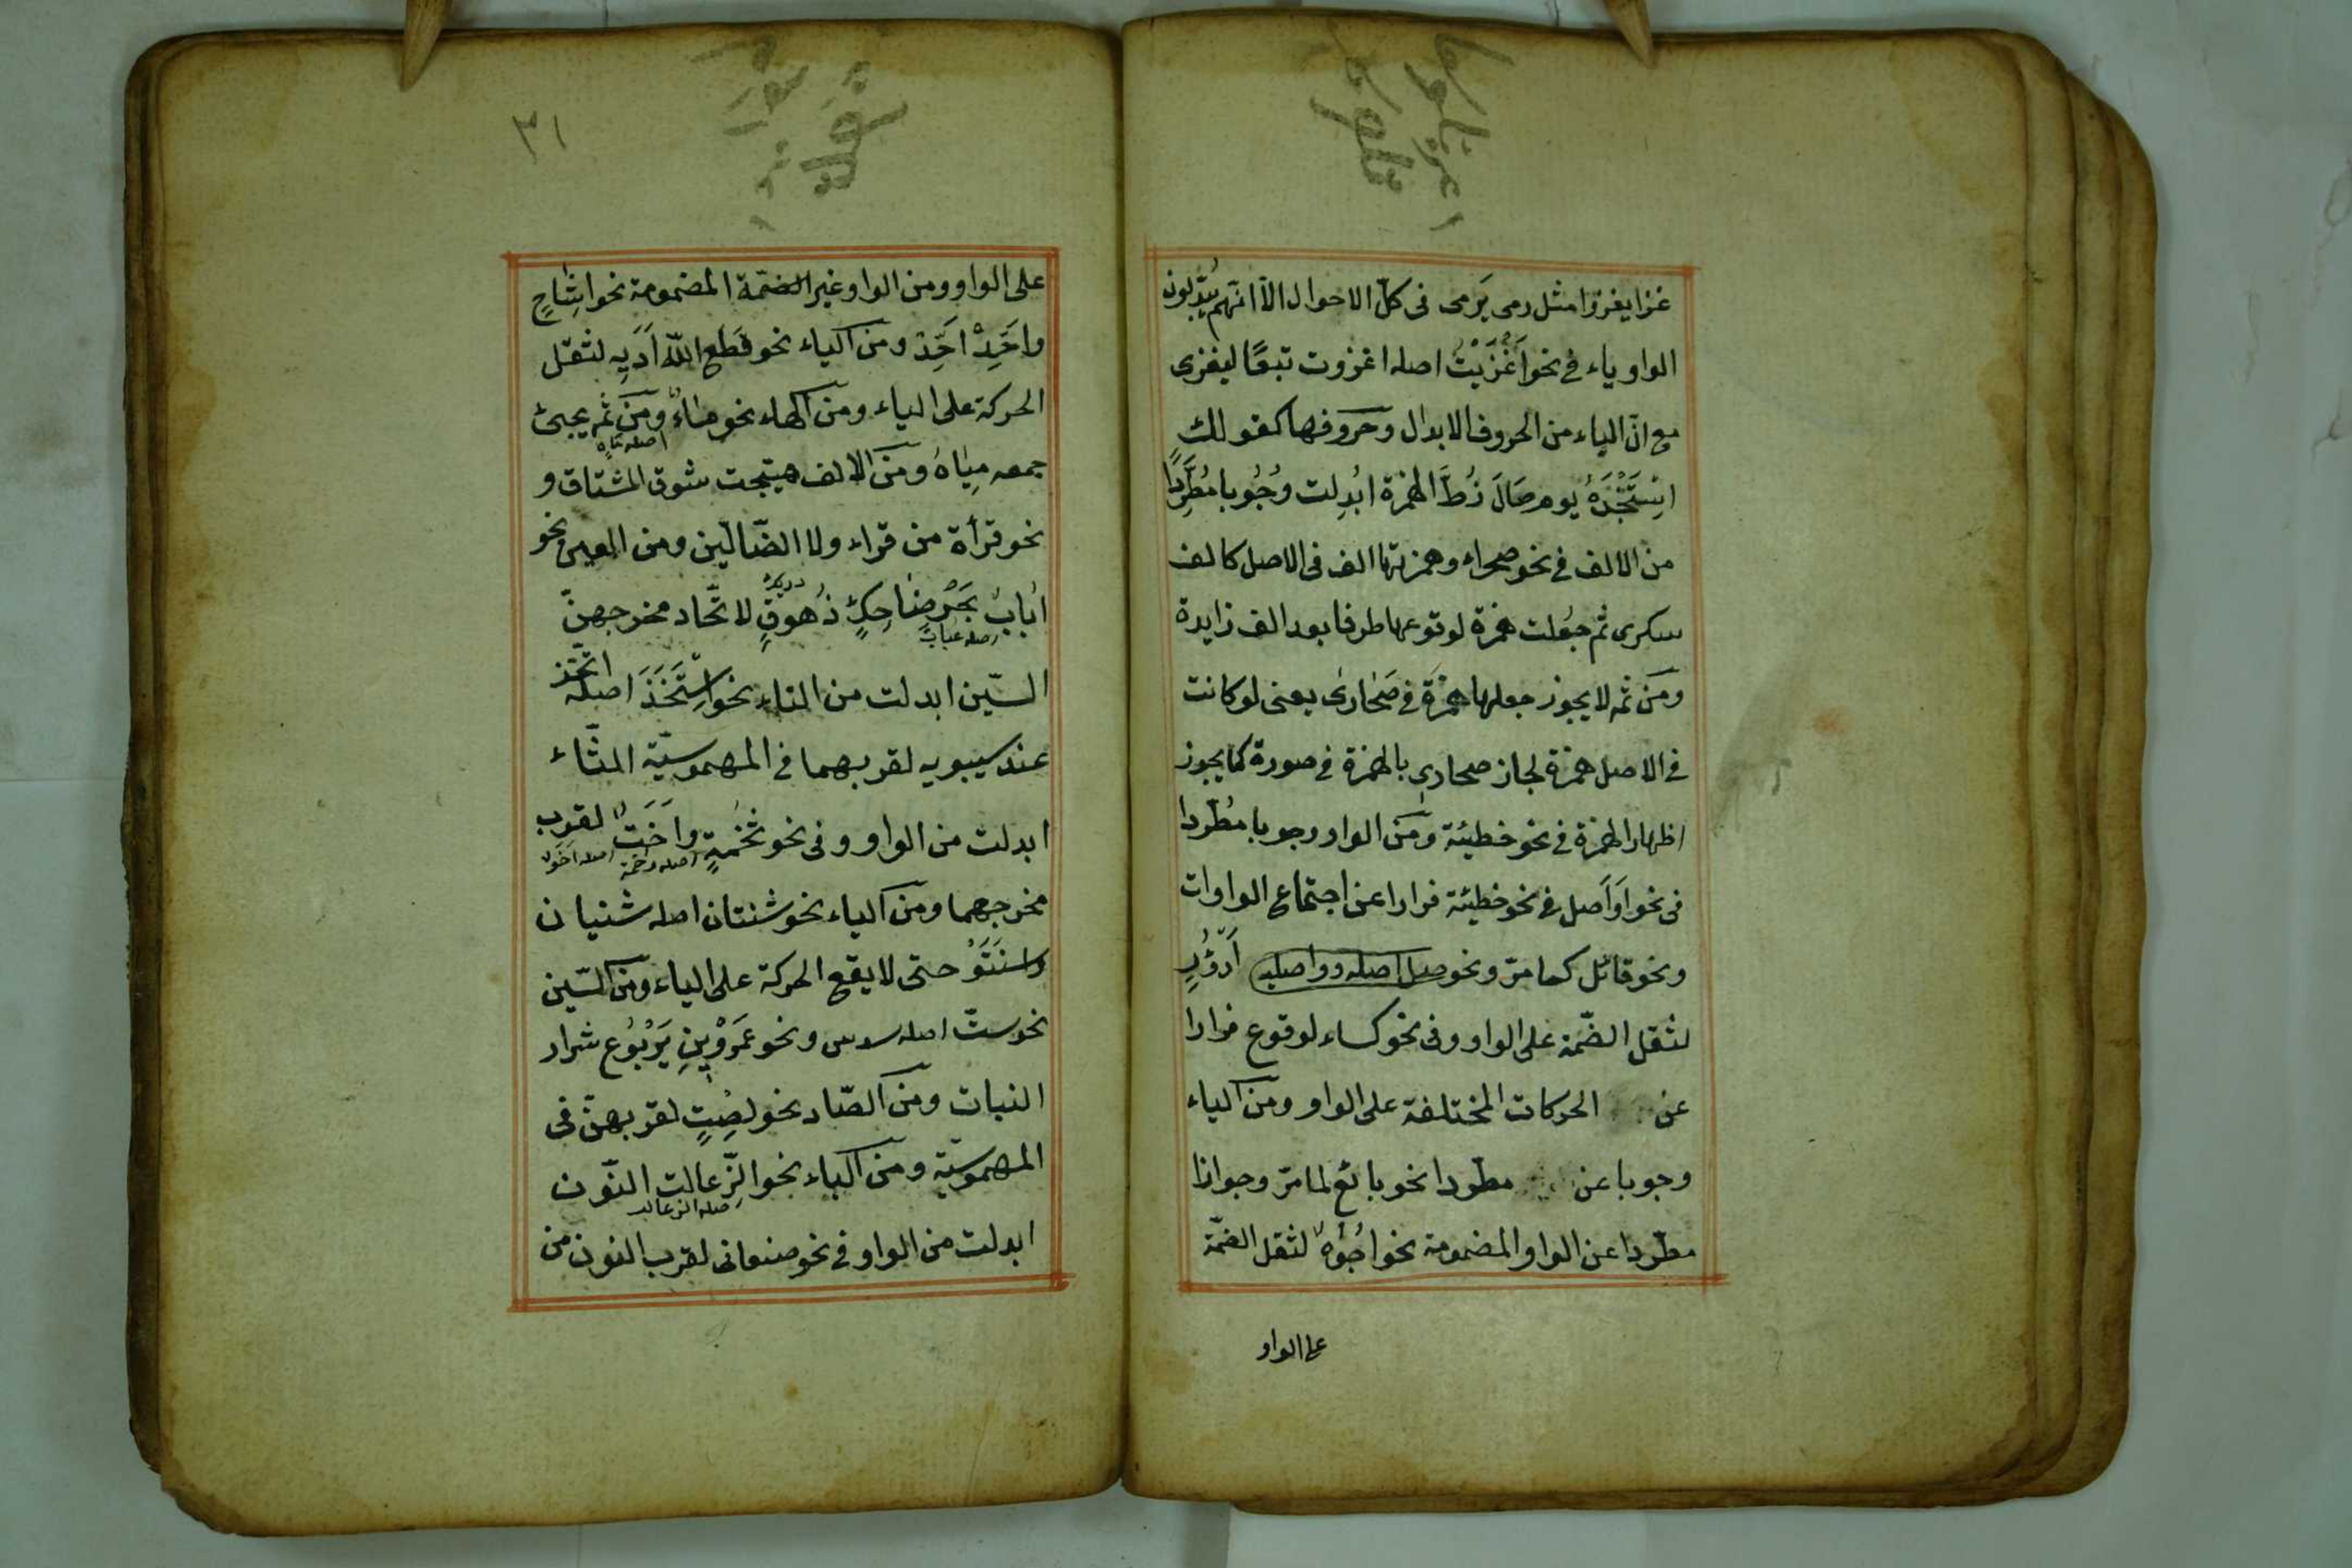 غزا يغزوا مثل رمى يَرمى فى كلّ الاحوال الّا انّهم يُبدّلون
الواو ياء فى نحو اَغْزَيْتُ اصله اغزوت تبعًا ليغزى
مع انّ الياء من الحروف الابدال وحروفها كقولك
اِسْتَنْجَدَهُ يوم صَالَ زُطَّ الهمزة ابُدِلت وُجُوبا مُطَّرِدًا
من الالف فى نحو صحراء وهمزتها الف فى الاصل كالف
سكرى ثم جُعلت همزة لوقوعها طرفا بعد الف زايدة
ومَن ثمه لا يجوز جعلها همزَةً فى صَحٰارىٰ يعنى لو كانت
فى الاصل همزة لجاز صحارى بالهمزة فى صورة كما يجوز
اظهار الهمزة فى نحو خطيئة ومَن الواو وجوبا مُطّردا
فى نحو اَوَاَصل فى نحو خطيئة فرارا عن اجتماع الواوات
ونحو قائل كما مرّ ونحو صل اصله وواصله اَدْؤُرٍ
لثقل الضّمة على الواو وفى نحو كساء لوقوع فرارا
عن الحركات المختلفة على الواو ومن الياء
وجوبا عن مطردا نحو بائع لما مرّ وجوازا
مطّردا عن الواو المضمومة نحو اُجُوْهٌ لثقل الضمّة
على الواو
٣١
على الواو ومن الواو غير الضمّة المضمومة نحو اِشَاحٍ
واَحَدٌ اَحَّدَ ومن الياء نحو قَطع اللّه اَدَيِه لثقل
الحركة على الياء ومن الهاء نحو مٰاءٌ ومَن ثمه يجىئ
اصله مَاه
جمعه مِيٰاهٌ ومن الالف هيّجت شوق المشتاق و
نحو قرأة من قراء ولا الضّالّين ومن العين نحو
اُبَابُ بَحْرٍ ضٰاحِكٍ زُهوقٍ لا تّحاد مخرجهنّ
اصله عباب
السّين ابدلت من التاء نحو اِسْتَخَذَ اصله اتّخذ
عند سيبويه لقربهما فى المهموسيّة التّاء
ابدلت من الواو وفى نحو تُخَمةٍ واُخَتٌ لقرب
اصله وخمة اصله اخو
مخرجهما ومن الياء نحو شنتان اصله شنيان
واسنَتَوْ حتى لا يقع الحركة على الياء ومن السّين
نحو ستّ اصله سدس ونحو عَمَرْوِبْنِ يَرْبُوع شرار
النبات ومن الصّاد نحو لِصْتٍ لقربهنّ فى
المهموسيّة ومن الباء نحو الذّعالت النّون
اصله الذعالب
ابدلت من الواو فى نحو صنعانى لقرب النون من